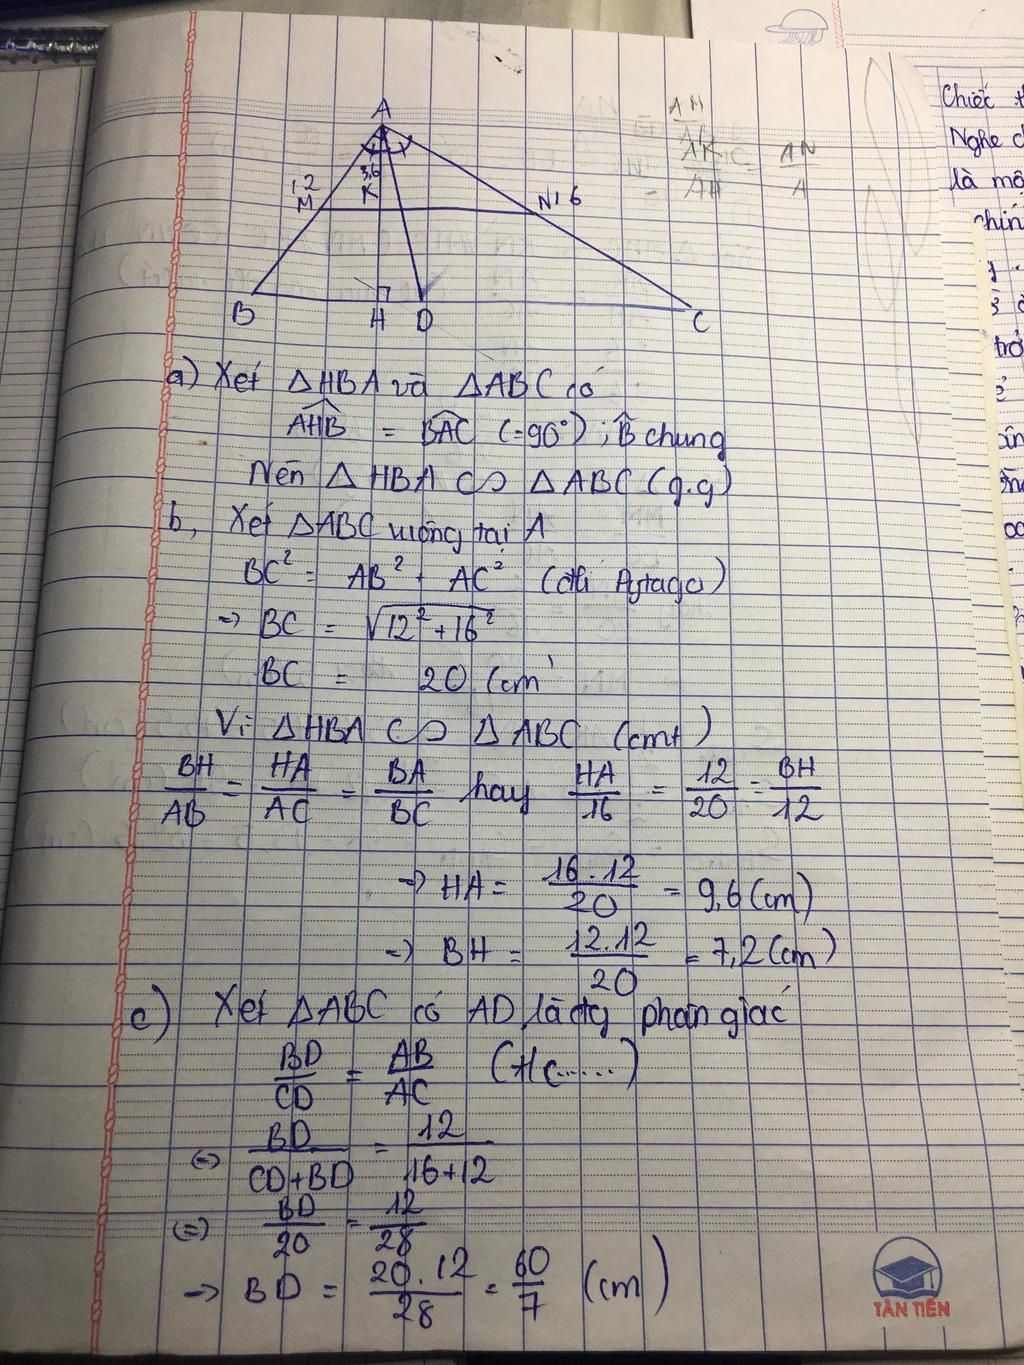 A
12
M
3,6
K
N 16
B
H
D
C
AM
AK
AH
AN
A
a) Xét △HBA và △ABC có
AHB = BAC (=90°) ; B chung
Nên △HBA ∽ △ABC (g.g)
b, Xét △ABC vuông tại A
BC² = AB² + AC² (đlí Pytago)
=> BC = √12²+16²
BC = 20 (cm
Vì △HBA ∽ △ABC (cmt)
BH/AB = HA/AC = BA/BC hay HA/16 = 12/20 = BH/12
=> HA = 16.12/20 = 9,6 (cm)
=> BH = 12.12/20 = 7,2 (cm)
c) Xét △ABC có AD là đg phân giác
BD/CD = AB/AC (t/c.....)
<=> BD/CD+BD = 12/16+12
<=> BD/20 = 12/28
=> BD = 20.12/28 = 60/7 (cm)
Chiếc
Nghe
là mộ
chín
trở
TÂN TIẾN